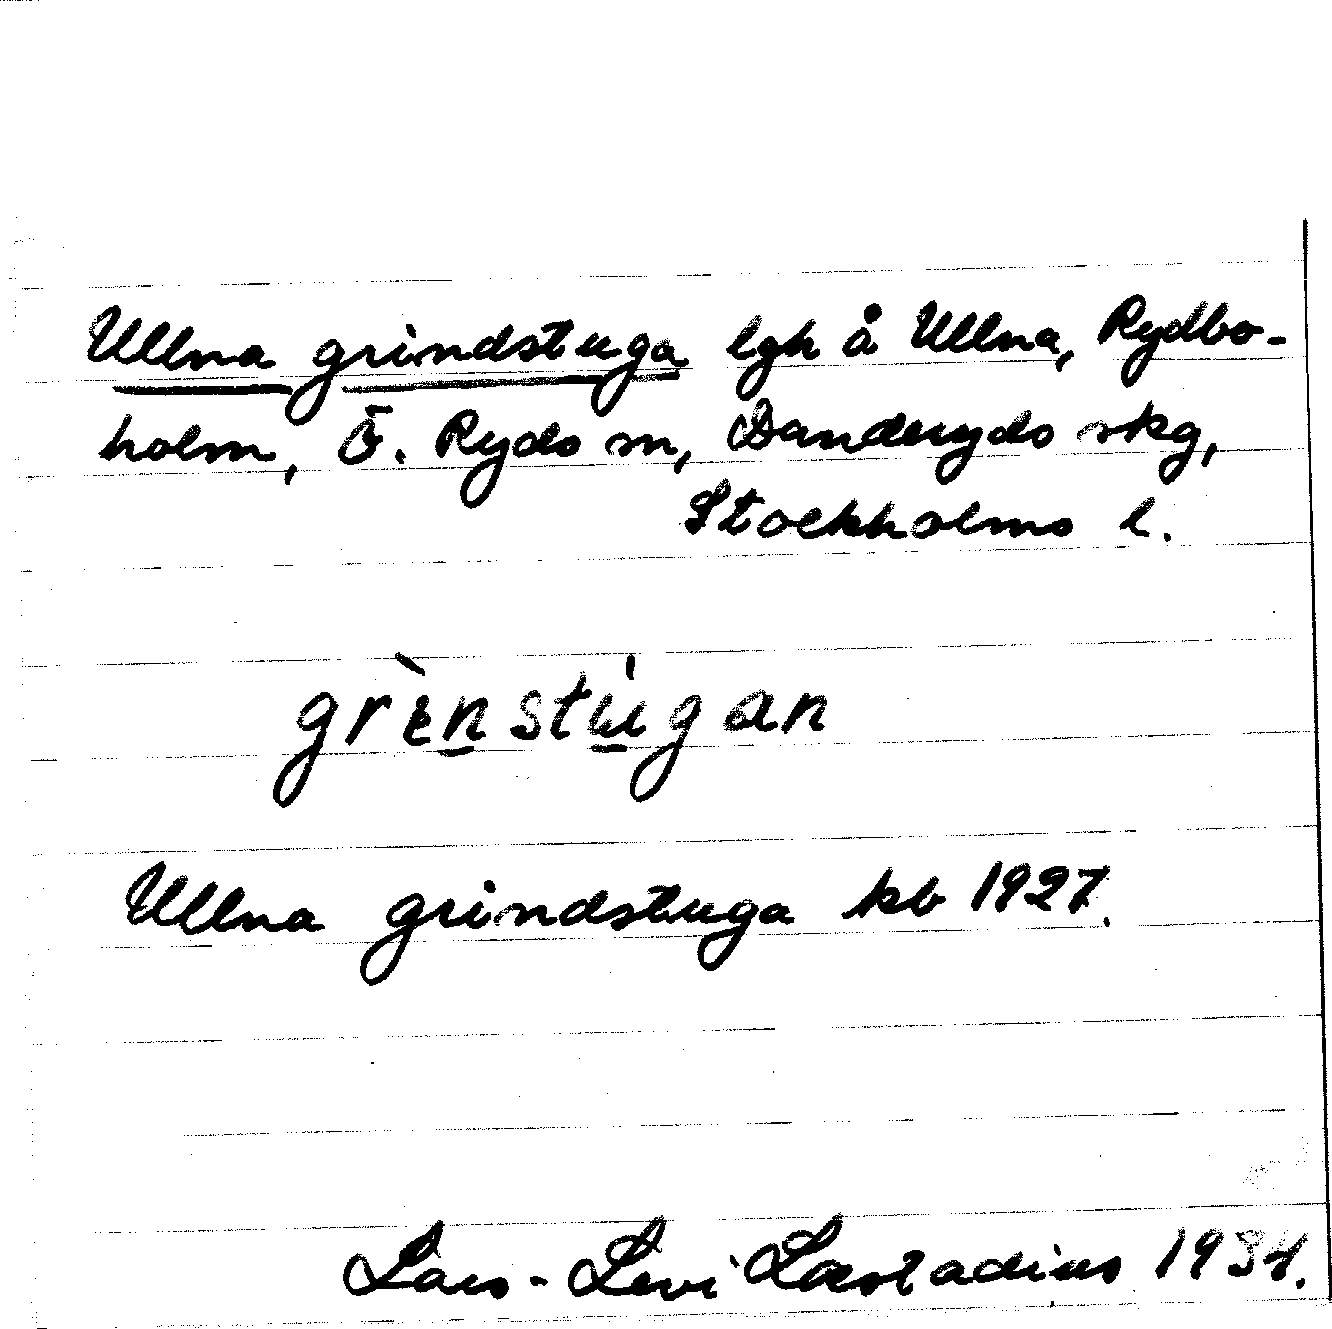 Ullna grindstuga lgh å Ullna, Rydbo-
holm, Ö. Ryds sn, Danderyds skg,
Stockholms l.
grènstúgan
Ullna grindstuga kb 1927.
Lars-Levi Læstadius 1934.